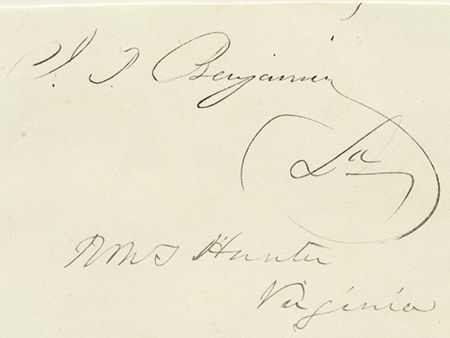 J. P. Benjamin
La
RMT Hunter
Virginia